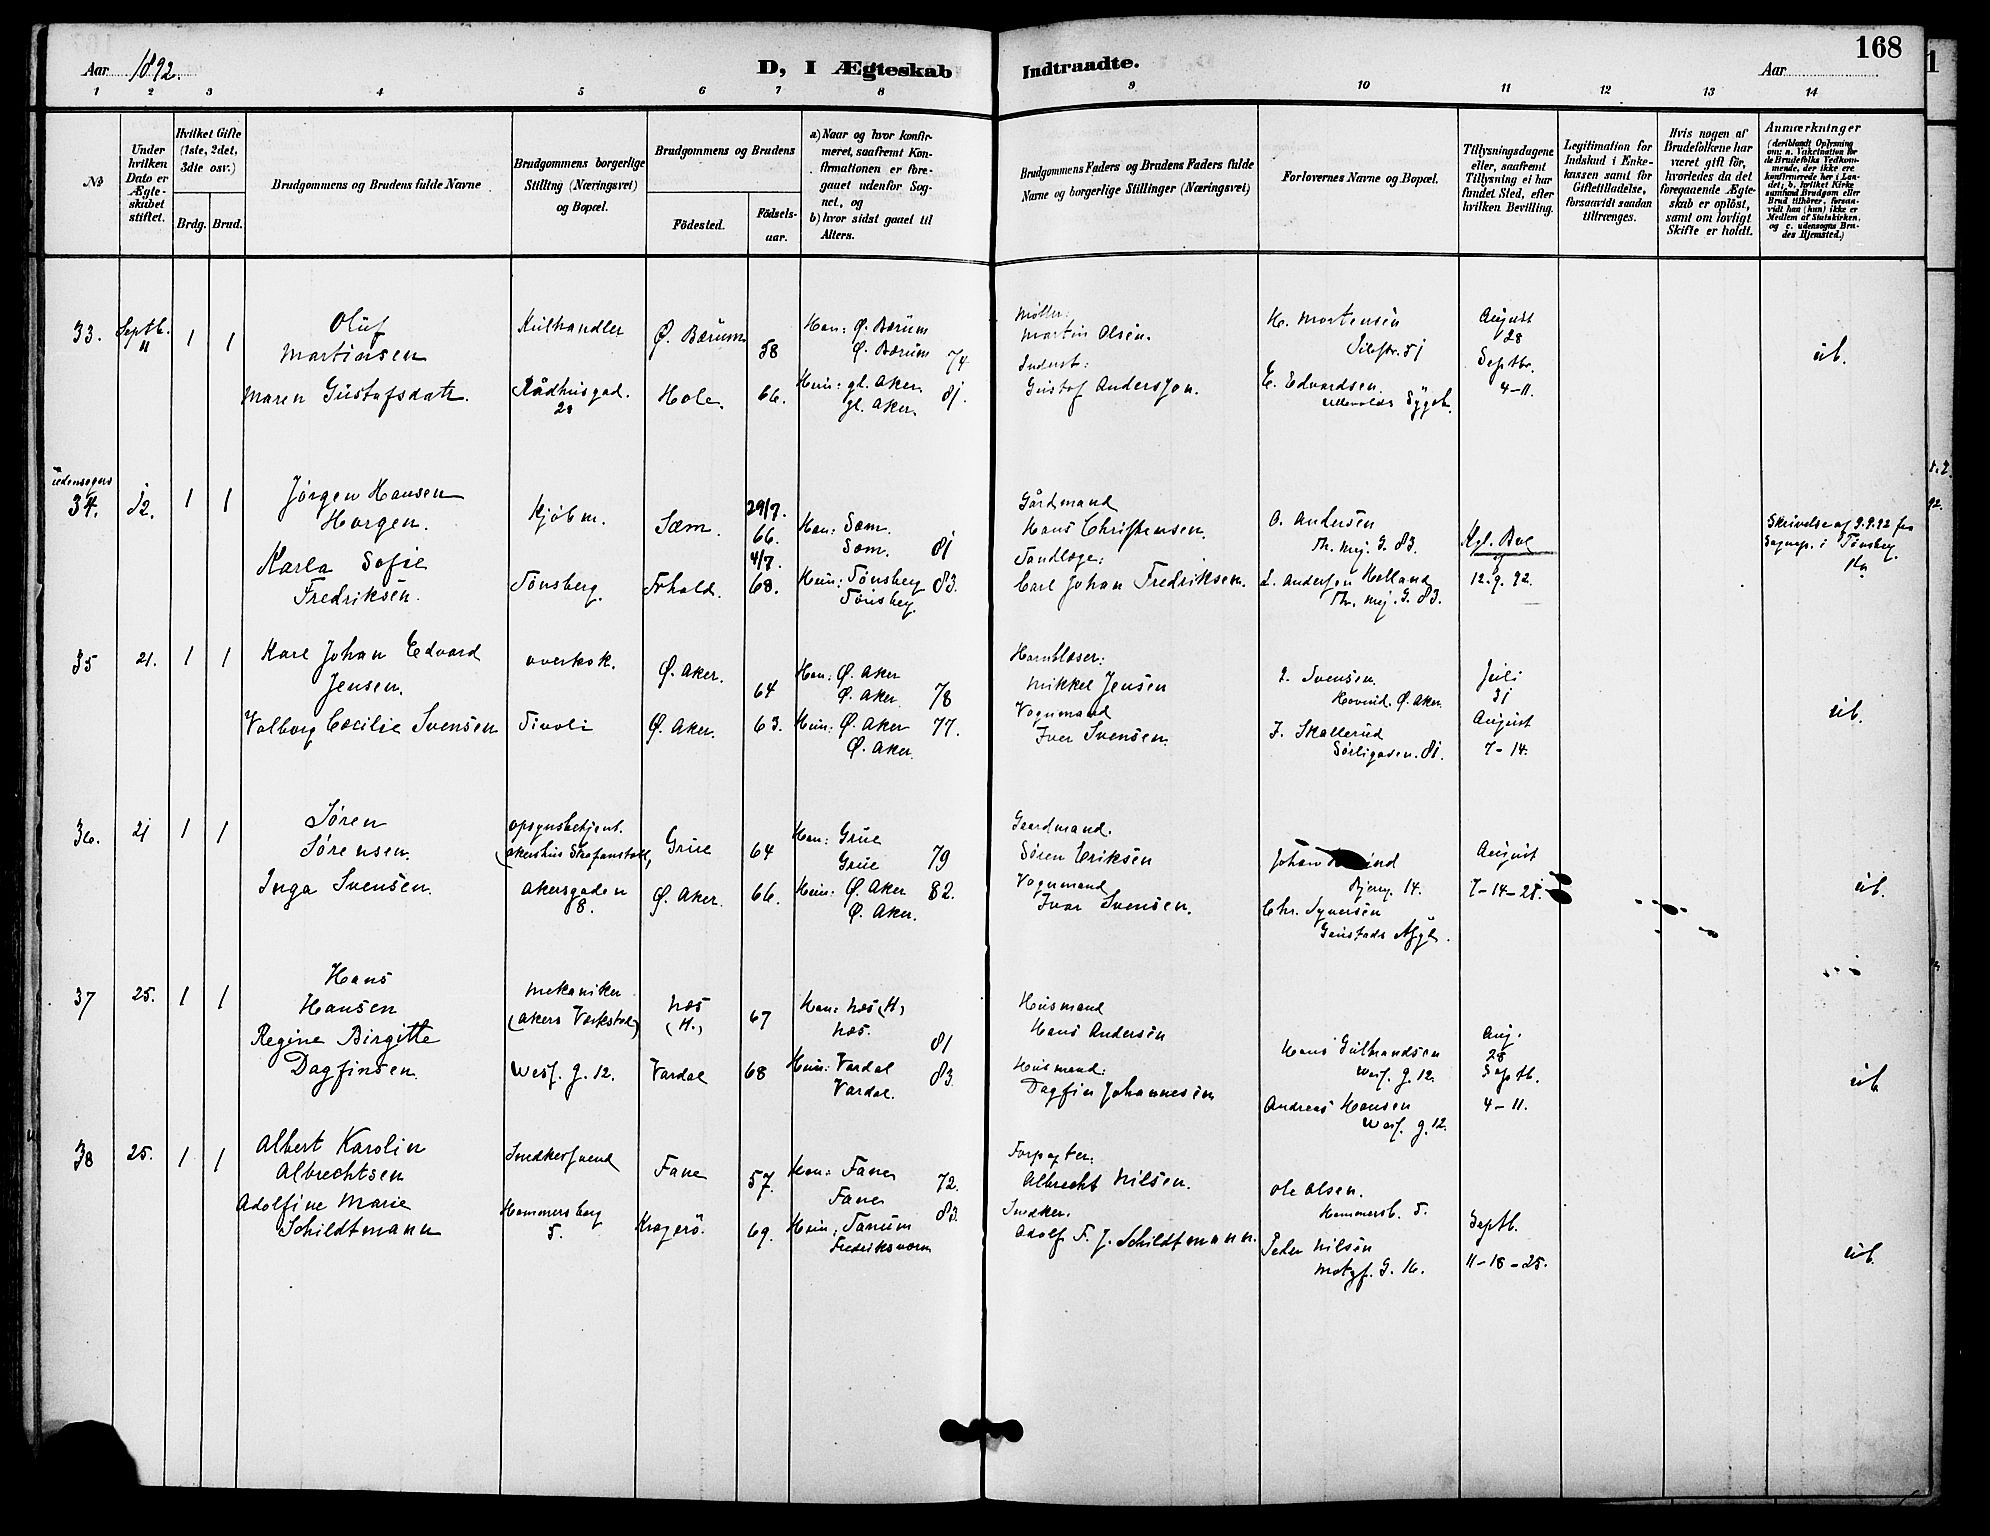 168
Aar 1892.
D, I Ægteskab Indtraadte.
Aar
1 2 3 4 5 6 7 8 9 10 11 12 13 14
No
Under hvilken Dato er Ægteskabet stiftet.
Hvilket Gifte (1ste, 2det, 3die osv.)
Brdg. Brud.
Brudgommens og Brudens fulde Navne
Brudgommens borgerlige Stilling (Næringsvei) og Bopæl.
Brudgommens og Brudens
Födested.
Födselsaar.
a) Naar og hvor konfirmeret, saafremt Konfirmationen er foregaaet udenfor Sognet, og
b) hvor sidst gaaet til Alters.
Brudgommens Faders og Brudens Faders fulde Navne og borgerlige Stillinger (Næringsvei)
Forlovernes Navne og Bopæl.
Tillysningsdagene eller, saafremt Tillysning ei har fundet Sted, efter hvilken Bevilling.
Legitimation for Indskud i Enkekassen samt for Giftetilladelse, forsaavidt saadan tiltrænges.
Hvis nogen af Brudefolkene har været gift før, hvorledes da det foregaaende Ægteskab er oplöst, samt om lovligt Skifte er holdt.
Anmærkninger
(deriblandt Oplysning om: a. Vakcination for de Brudefolks Vedkommende, der ikke ere konfirmerede her i Landet; b. hvilket Kirkesamfund Brudgom eller Brud tilhörer, forsaavidt han (hun) ikke er Medlem af Statskirken, og c. udensogns Brudes Hjemsted.)
33. Septb. 11 1 1
Oluf Martinsen
Maren Gustafsdatr.
Kulhandler
Rådhusgad. 28
Ø. Bærum 58
Hole. 66.
Han: Ø. Bærum
Ø. Bærum 74
Hun: gl. Aker.
gl. Aker. 81.
Møller:
Martin Olsen.
Inderst:
Gustaf Andersson.
H. Mortensen
51
E. Edvardsen
Ullevolds Sygeh.
August
28
Septbr.
4-11.
ub.
udensogns
34. 12. 1 1
Jørgen Hansen
Horgen.
Karla Sofie
Fredriksen.
Kjøbm.
Tönsberg.
Sæm. 29/7 66.
Frhald. 4/7 68.
Han: Sæm.
Sæm. 81
Hun: Tönsberg 83.
Tönsberg
Gårdmand
Hans Christensen.
Tandlæge:
Carl Johan Fredriksen.
O. Andersen
Th. Mej. G. 83.
L. Andersen Holland
Th. Mej. G. 83.
Kgl. Bev.
12.9.92.
Skrivelse af 9.9.92 fra
Sognep. i Tönsberg.
35 21. 1 1
Karl Johan Edvard
Jensen.
Valborg Cecilie Svensen
overkok.
Tivoli
Ø. Aker. 64
Ø. Aker. 63.
Han: Ø. Aker
Ø. Aker. 78
Hun: Ø. Aker 77.
Ø. Aker.
Hornblæser:
Mikkel Jensen
Vognmand
Iver Svensen.
L. Svensen.
Hovind. Ø. Aker.
J. Skallerud
Sørligaden. 81.
Juli
31
August
7-14.
ub.
36. 21 1 1
Søren
Sørensen.
Inga Svensen.
opsynsbetjent.
(Akershus Strafanstalt)
Akersgaden
8.
Grue 64
Ø. Aker. 66.
Han: Grue
Grue 79
Hun: Ø. Aker 82.
Ø. Aker.
Gaardmand.
Søren Eriksen
Vognmand
Ivar Svensen.
Johan
Bjerreg. 14.
Chr. Syversen
Gaustads Asyl.
August
7-14-21.
ub.
37 25. 1 1
Hans
Hansen
Regine Birgitte
Dagfinsen.
Mekaniker
(Akers Værksted)
Wesf. g. 12.
Næs
(H.) 67
Vardal 68
Han: Næs (H)
Næs. 81
Hun: Vardal
Vardal. 83.
Husmand
Hans Andersen
Husmand:
Dagfin Johannesen
Hans Gulbrandsen
Wesf. g. 12.
Andreas Hansen
Wesf. g. 12.
Aug.
28
Septb.
4-11.
ub.
38 25. 1 1
Albert Karolin
Albrechtsen
Adolfine Marie
Schildtmann
Snedkersvend
Hammersborg
5.
Fane 57.
Kragerö. 69.
Han: Fane 72.
Fane
Hun: Tanum 83.
Fredriksværn
Forpagter:
Albrecht Nilsen.
Snedker.
Adolf F. J. Schildtmann.
Ole Olsen.
Hammersb. 5.
Peder Nilsen
Motzf. G. 16.
Septb.
11-18-25.
ub.